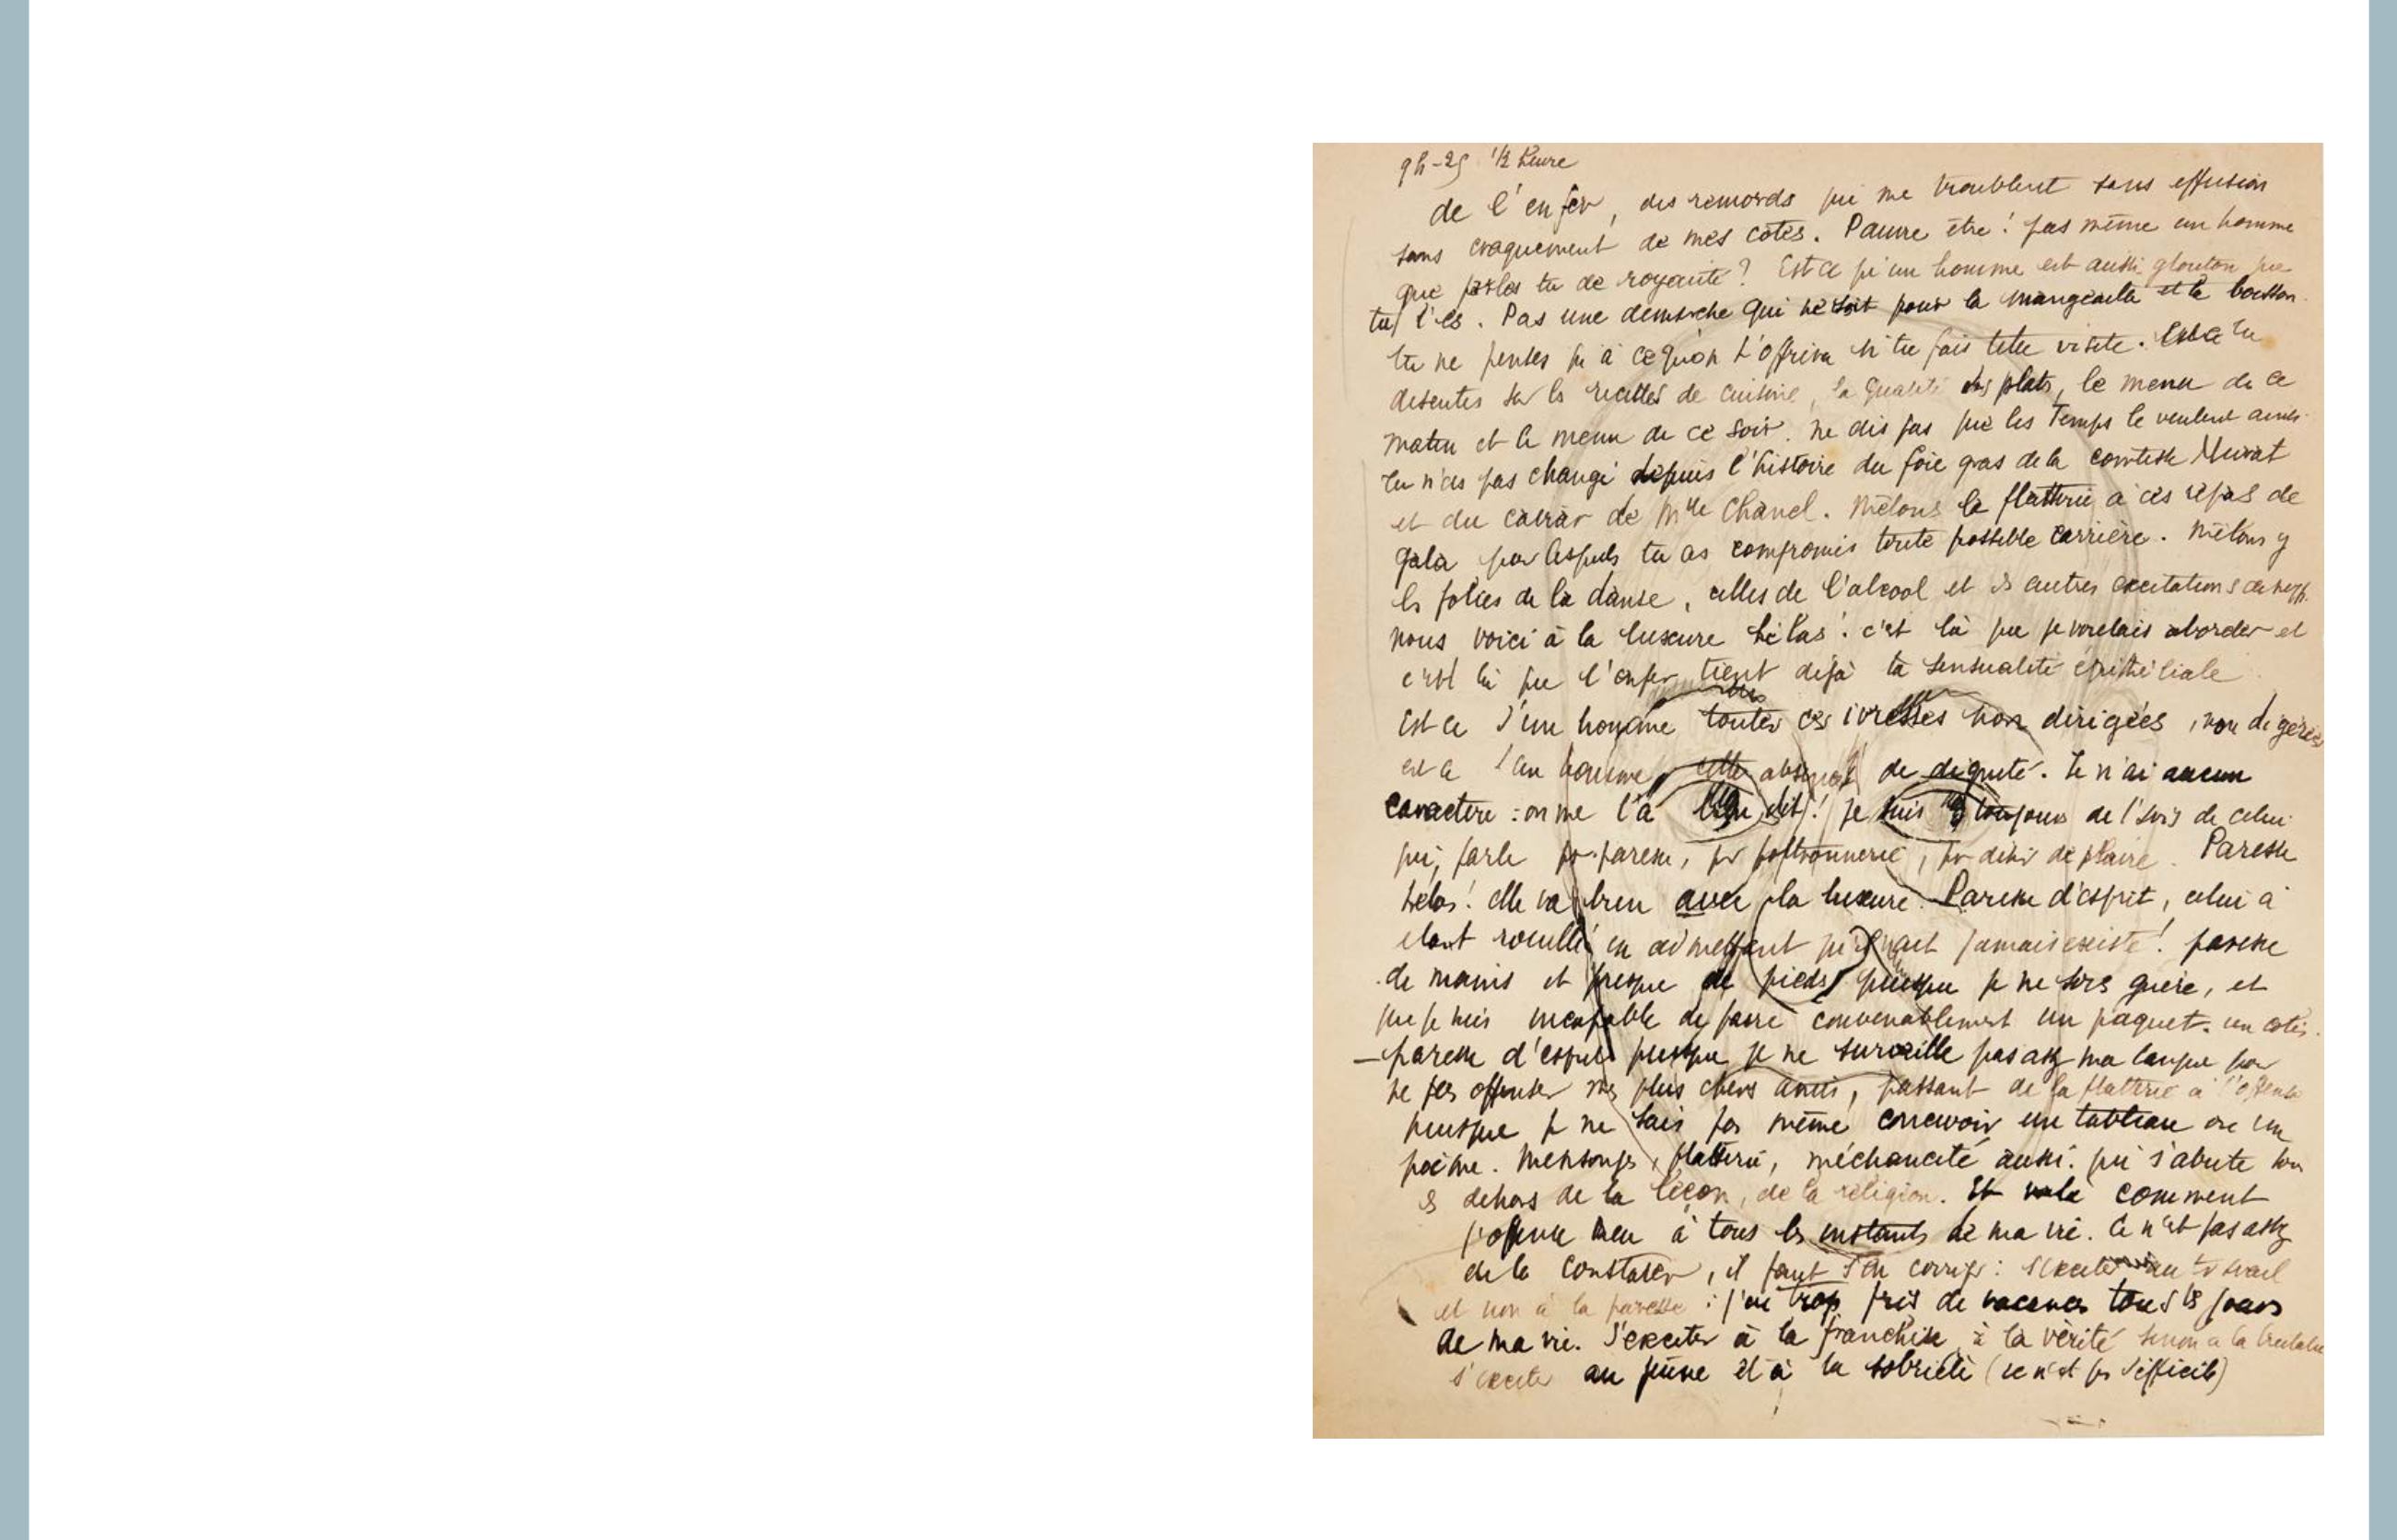 9h-25 1/2 heure
de l'enfer, des remords qui me troublent sans effusion
sans craquement de mes cotes. Pauvre être! pas même un homme
que parles tu de royauté? Est ce qu'un homme est aussi glouton que
tu l'es. Pas une demarche qui ne soit pour la mangeaille et la boisson.
tu ne penses qu'à ce qu'on t'offrira si tu fais telle visite. Est ce tu
discutes sur les recettes de cuisine, la qualité des plats, le menu de ce
matin et le menu de ce soir. ne dis pas que les Temps le veulent ainsi.
Tu n'as pas changé depuis l'histoire du foie gras de la comtesse Murat
et du caviar de Mlle Chanel. Mêlons la flatterie à ces repas de
gala par lesquels tu as compromis toute possible carrière. Mêlons y
les folies de la danse, celles de l'alcool et les autres excitations
nous voici à la luxure hélas! c'est là que je voulais aborder et
c'est là que l'enfer tient déjà ta sensualité épithéliale
Est ce d'un homme toutes ces ivresses non dirigées, non digérées
est ce d'un homme cette absence de dignité. Je n'ai aucun
caractère : on me l'a bien dit! je suis toujours de l'avis de celui
qui parle par paresse, par poltronnerie, par désir de plaire. Paresse
hélas! elle va bien avec la luxure. Paresse d'esprit, celui à
étant rouillé en admettant qu'il ait jamais existé! paresse
de mains et presque de pieds puisque je ne sors guère, et
que je suis incapable de faire convenablement un paquet. un colis.
— paresse d'esprit puisque je ne surveille pas assez ma langue pour
ne pas offenser mes plus chers amis, passant de la flatterie à l'offense
puisque je ne sais pas même concevoir un tableau ou un
poème. Mensonges, flatterie, méchanceté aussi. qui s'abute
dehors de la leçon, de la religion. Et voilà comment
j'offense Dieu à tous les instants de ma vie. Ce n'est pas assez
de le constater, il faut s'en corriger : s'exciter au travail
et non à la paresse : j'ai trop pris de vacances tous les jours
de ma vie. S'exciter à la franchise à la vérité sinon à la
s'exciter au jeûne et à la sobriété (ce n'est pas difficile)